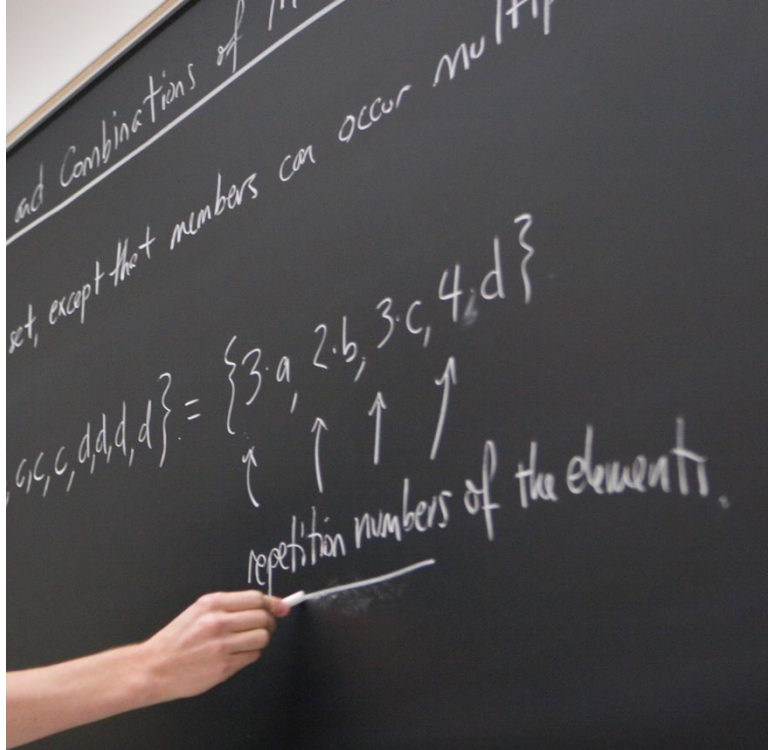 and Combinations of
set, except that members can occur multip
, c,c,c, d,d,d,d} = {3·a, 2·b, 3·c, 4·d}
repetition numbers of the elements.